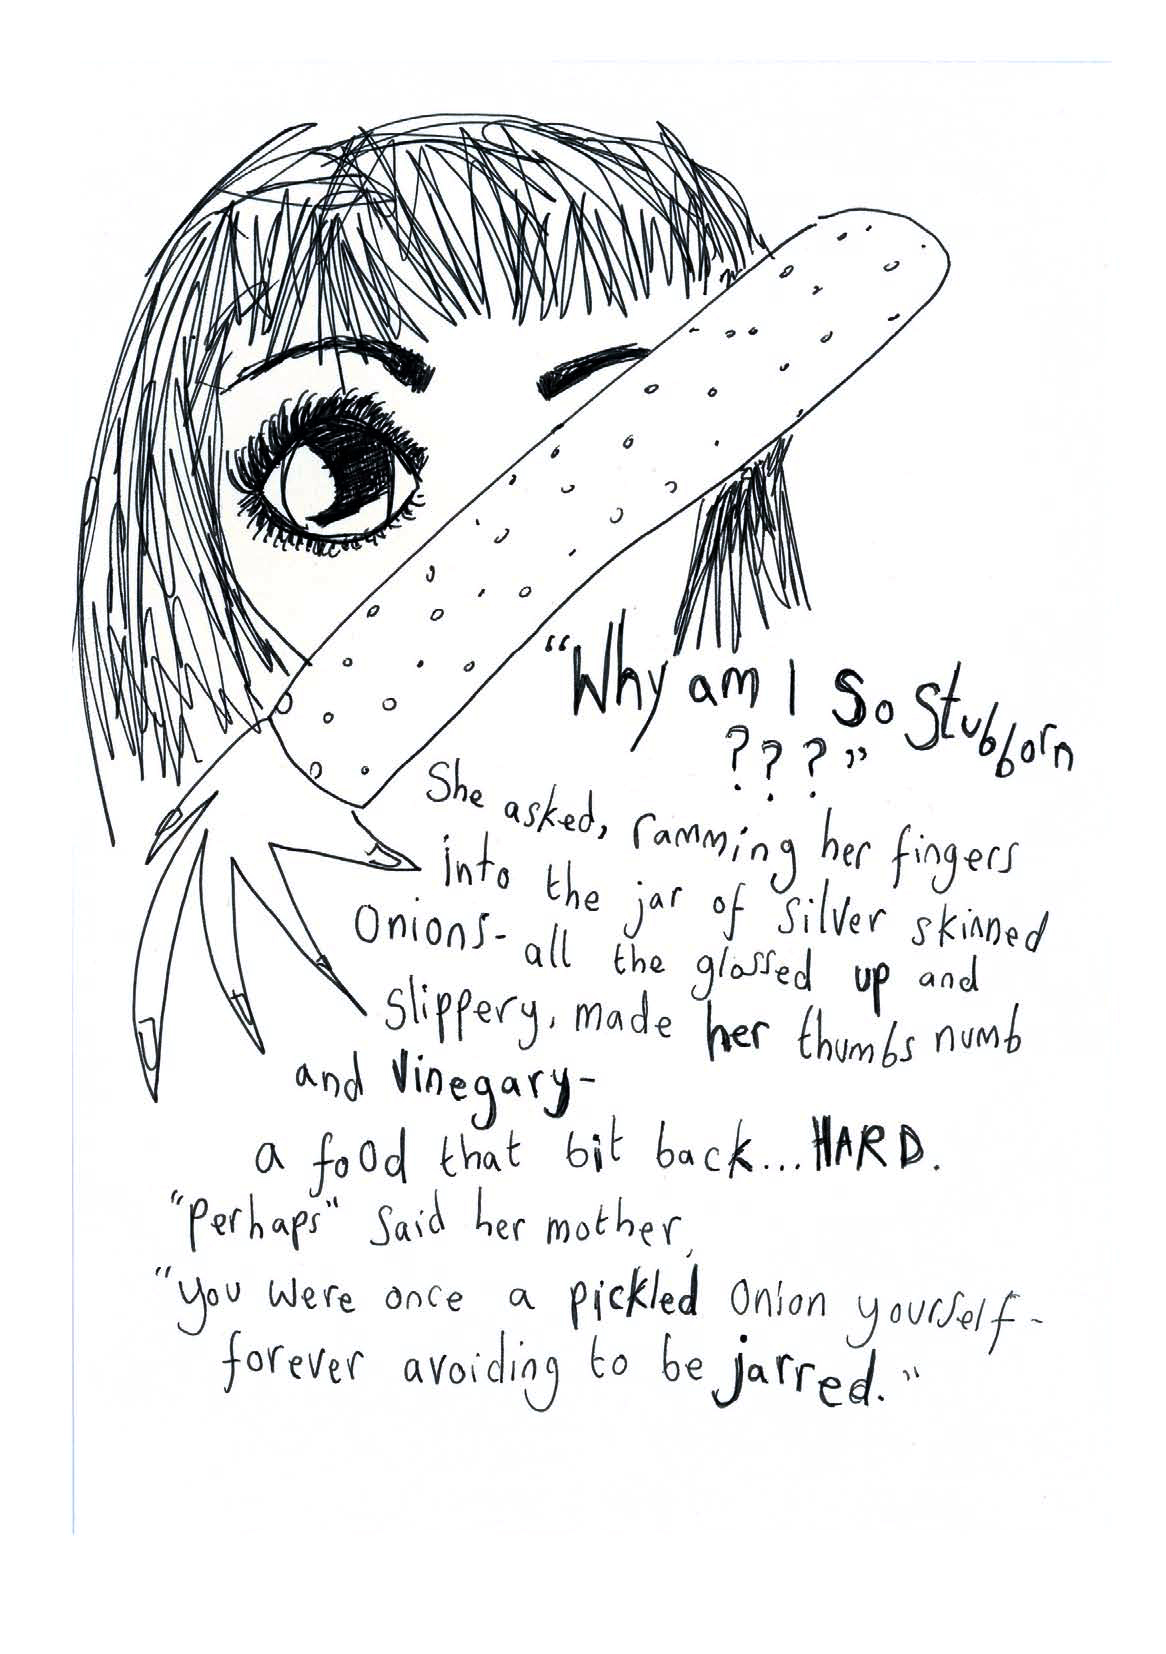 "Why am I So Stubborn
???"
She asked, ramming her fingers
into the jar of Silver skinned
Onions- all the glossed up and
slippery, made her thumbs numb
and Vinegary-
a food that bit back... HARD.
"Perhaps" Said her mother,
"you were once a pickled Onion yourself-
forever avoiding to be jarred."